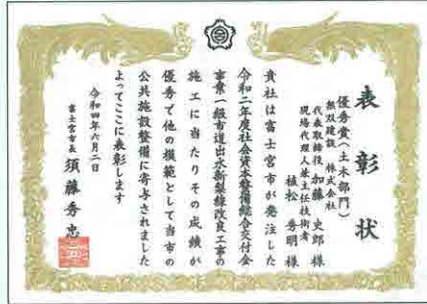 表彰状
優秀賞（土木部門）
無双建設　株式会社
代表取締役　加藤　史郎　様
現場代理人兼主任技術者
植松　秀明　様
貴社は富士宮市が発注した
令和二年度社会資本整備総合交付金
事業一級市道出水新梨線改良工事の
施工に当たりその成績が
優秀で他の模範として当市の
公共施設整備に寄与されました
よってここに表彰します
令和四年六月二日
富士宮市長　須藤秀忠